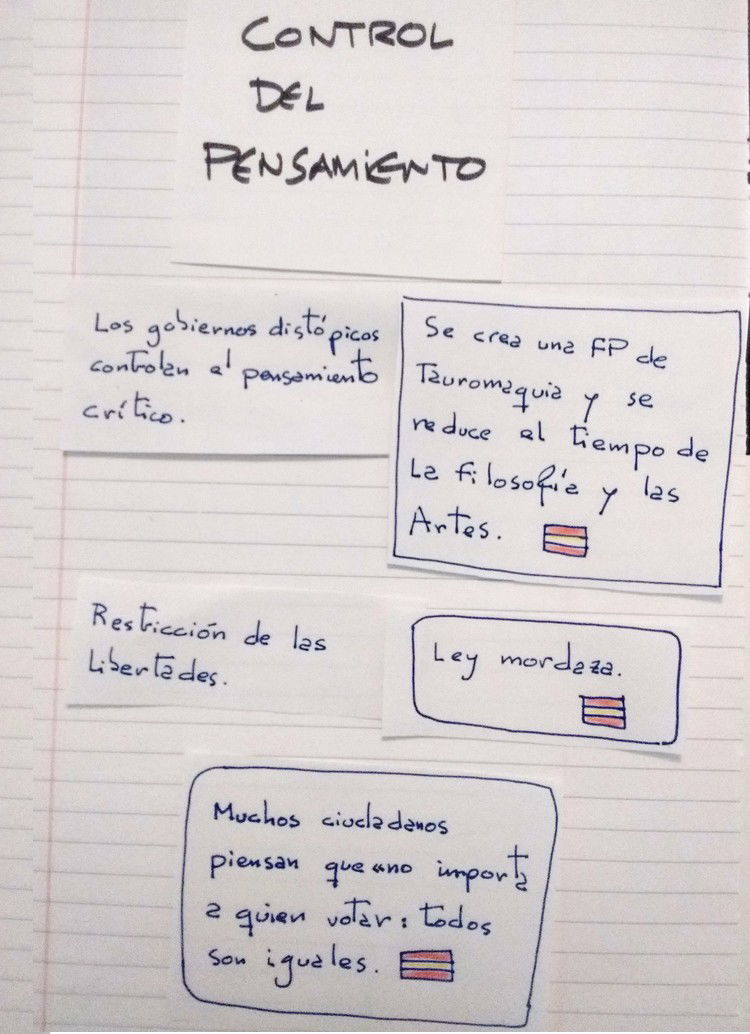 CONTROL
DEL
PENSAMIENTO
Los gobiernos distópicos
controlan el pensamiento
crítico.
Se crea una FP de
Tauromaquia y se
reduce el tiempo de
la filosofía y las
Artes.
Restricción de las
Libertades.
Ley mordaza.
Muchos ciudadanos
piensan que "no importa
a quien votar: todos
son iguales.